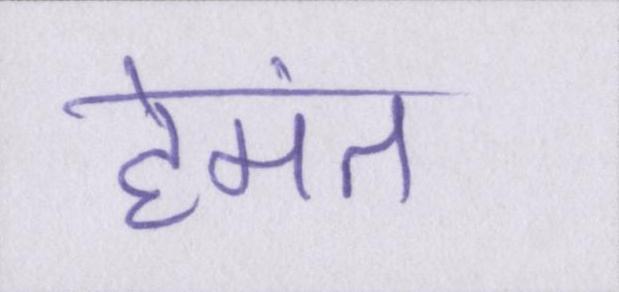 हेमंत